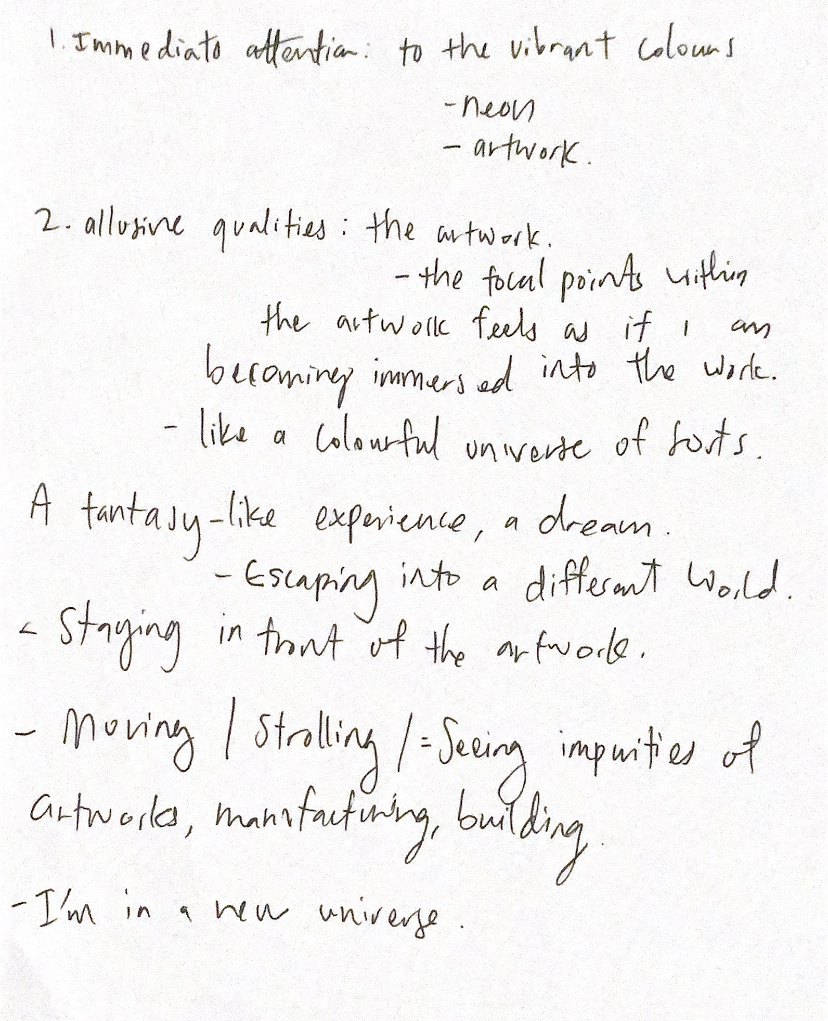 1. Immediate attention: to the vibrant colours
- neon
- artwork.
2. allusive qualities: the artwork.
- the focal points within
the artwork feels as if I am
becoming immersed into the work.
- like a colourful universe of sorts.
A fantasy-like experience, a dream.
- Escaping into a different world.
- Staying in front of the artwork.
- Moving / Strolling / = Seeing impurities of
artworks, manufacturing, building.
- I'm in a new universe.